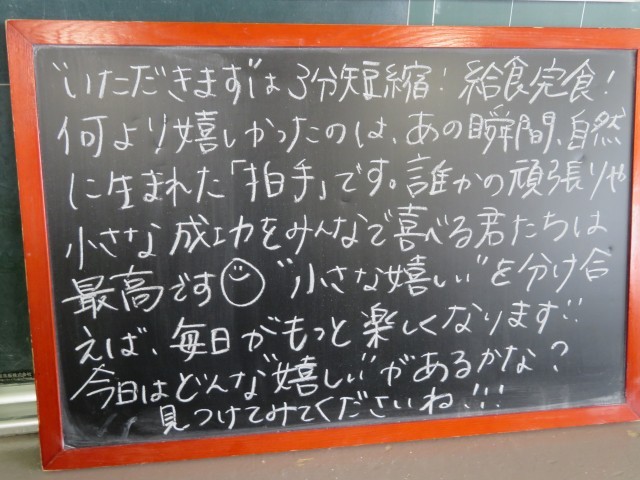 "いただきます"は3分短縮！給食完食！
何より嬉しかったのは、あの瞬間、自然
に生まれた「拍手」です。誰かの頑張りや
小さな成功をみんなで喜べる君たちは
最高です "小さな嬉しい"を分け合
えば、毎日がもっと楽しくなります!!
今日はどんな"嬉しい"があるかな？
見つけてみてくださいね!!!